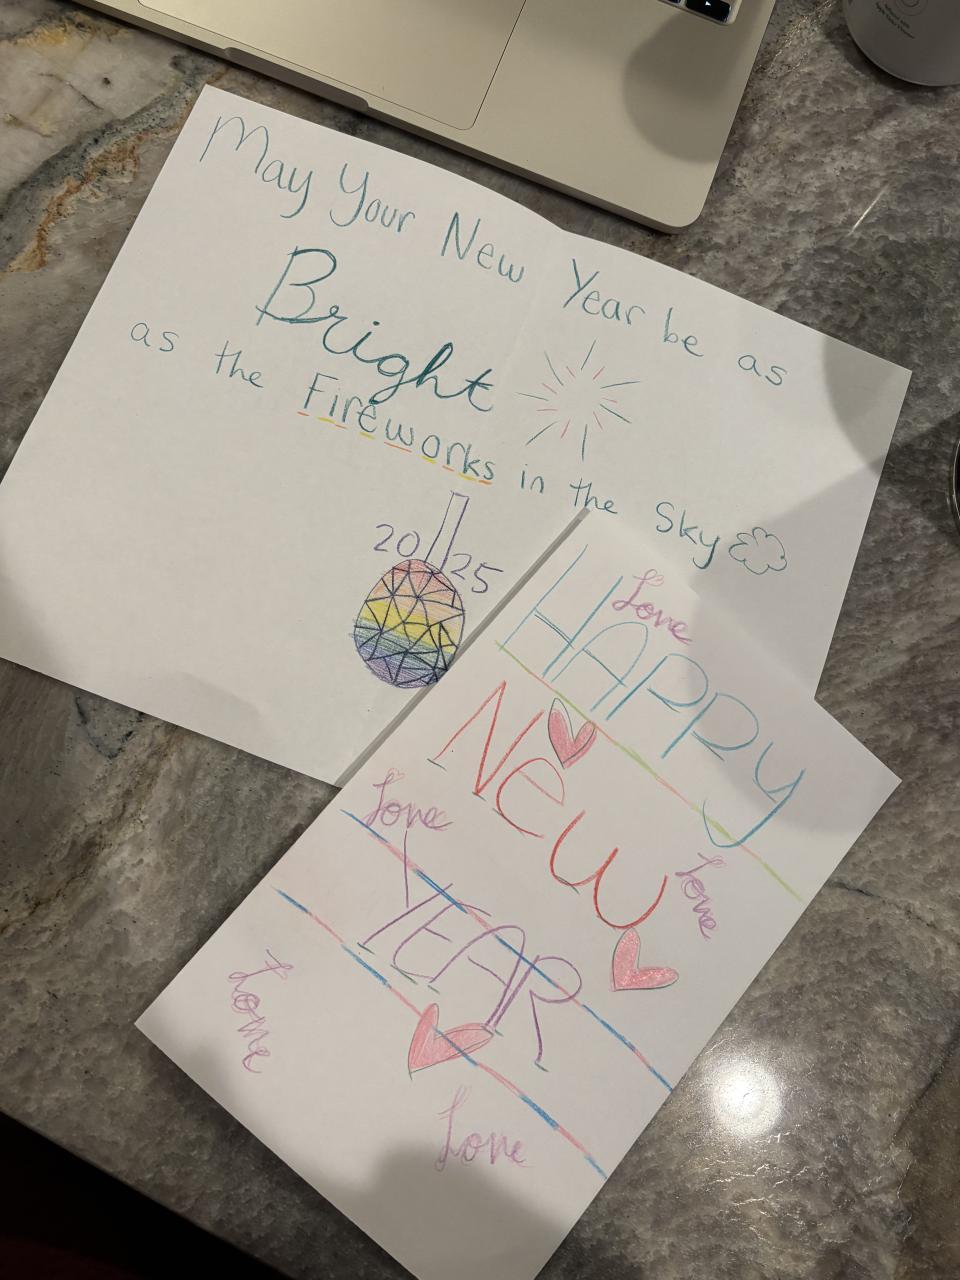 May Your New Year be as
Bright
as the Fireworks in the Sky
20 25
Love
HAPPY
New
Love
Love
YEAR
Love
Love